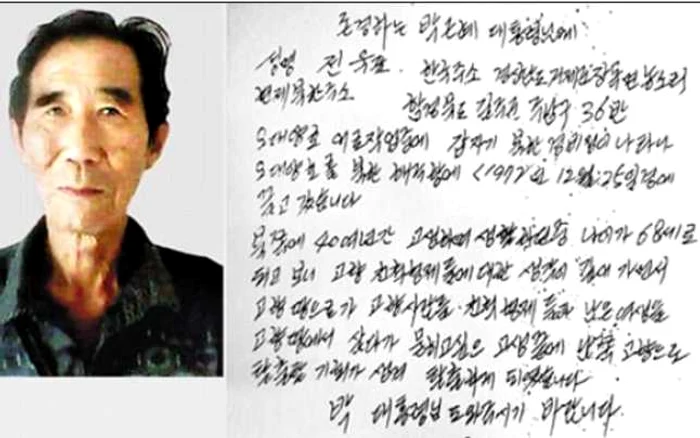 존경하는 박근혜 대통령님에
성명 전욱표. 한국주소 경상남도 거제군 장목면 농소리
현재북한주소 함경북도 길주군 주남구 36반
오대양호 어로작업중에 갑자기 북한 경비정이 나타나
오대양호를 북한 해역쪽에 <1972>년 12월 25일경에
끌고 갔습니다
북쪽에 40여년간 고생하며 생활하던중 나이가 68세로
되고 보니 고향 친척형제들에 대한 생각이 간절해 가면서
고향땅으로가 고향사람들·친척형제들과 남은여생을
고향땅에서 살다가 묻히고싶은 고생끝에 남쪽 고향으로
탈출할 기회가 생겨 탈출하게 되였습니다
박 대통령님 도와주시기 바랍니다.